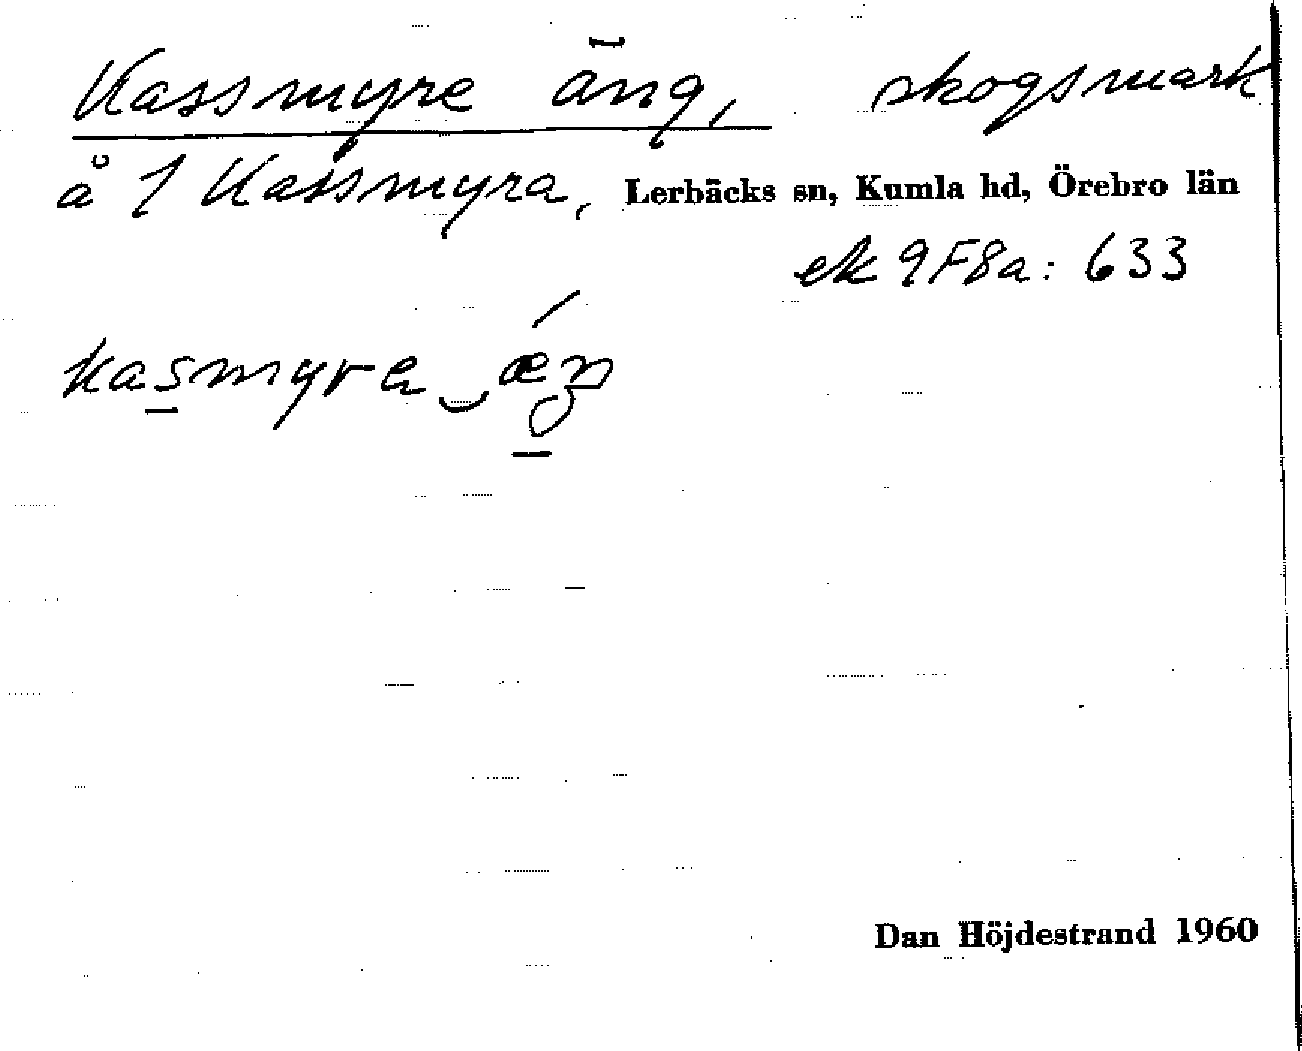 Kassmyre äng, skogsmark
å 1 Kassmyra, Lerbäcks sn, Kumla hd, Örebro län
ek 9F8a: 633
kasmyra‿ǽŋ
Dan Höjdestrand 1960